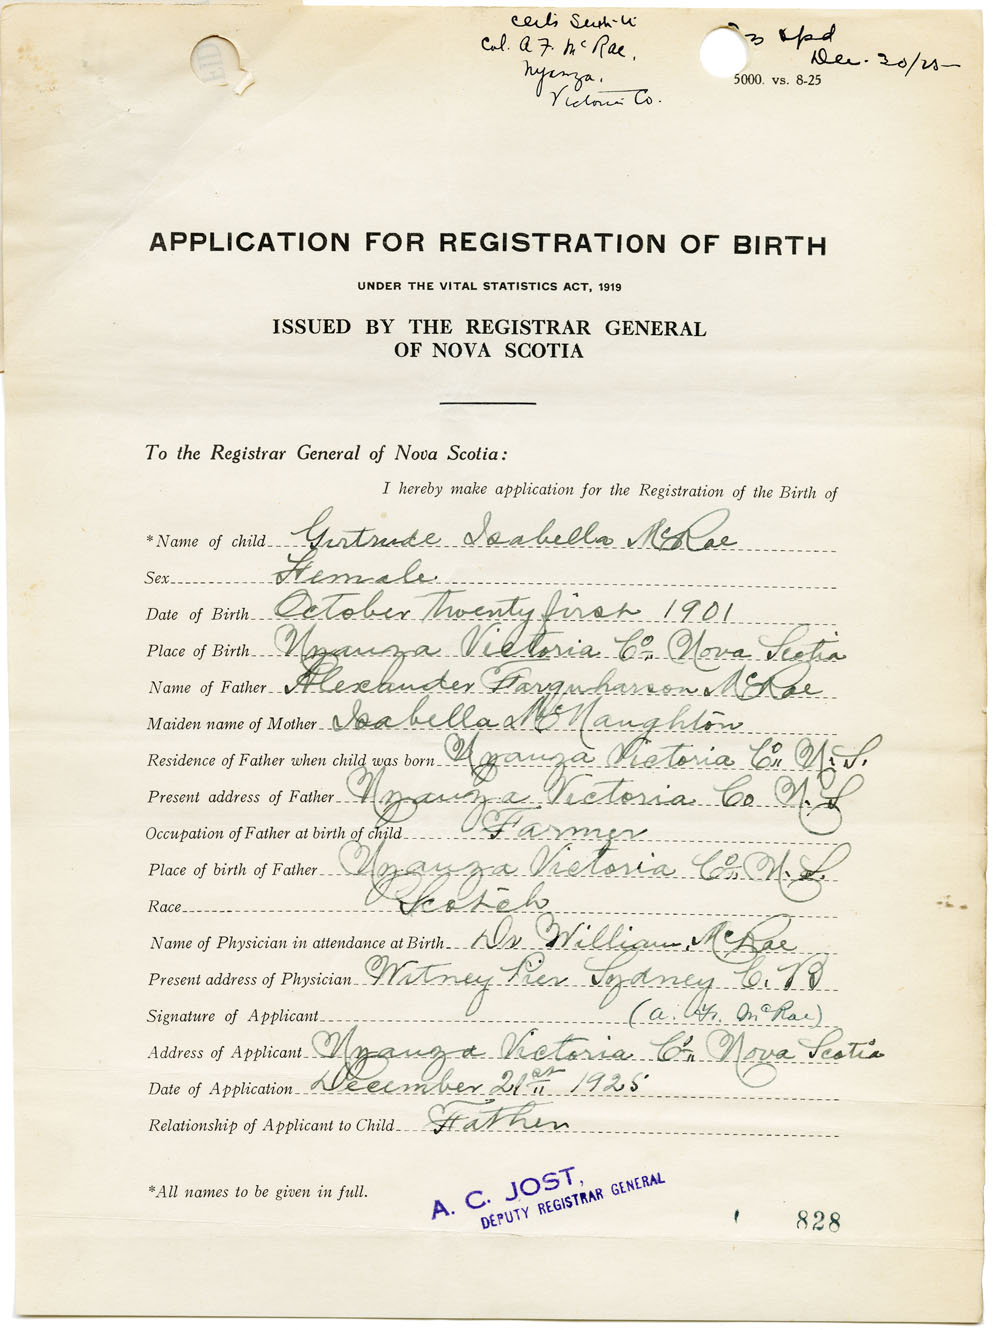 certs Sent to
Col. A. F. McRae,
Nyanza,
Victoria Co.
Dec. 30/25
5000. vs. 8-25
APPLICATION FOR REGISTRATION OF BIRTH
UNDER THE VITAL STATISTICS ACT, 1919
ISSUED BY THE REGISTRAR GENERAL
OF NOVA SCOTIA
To the Registrar General of Nova Scotia:
I hereby make application for the Registration of the Birth of
*Name of child Girtrude Isabella McRae
Sex Female
Date of Birth October Twenty first 1901
Place of Birth Nyanza Victoria Co. Nova Scotia
Name of Father Alexander Farquharson McRae
Maiden name of Mother Isabella McNaughton
Residence of Father when child was born Nyanza Victoria Co. N. S.
Present address of Father Nyanza Victoria Co N. S
Occupation of Father at birth of child Farmer
Place of birth of Father Nyanza Victoria Co. N. S.
Race Scotch
Name of Physician in attendance at Birth Dr William McRae
Present address of Physician Witney Pier Sydney C. B
Signature of Applicant (A. F. McRae)
Address of Applicant Nyanza Victoria Co. Nova Scotia
Date of Application December 21st 1925
Relationship of Applicant to Child Father
*All names to be given in full.
A. C. JOST,
DEPUTY REGISTRAR GENERAL
828